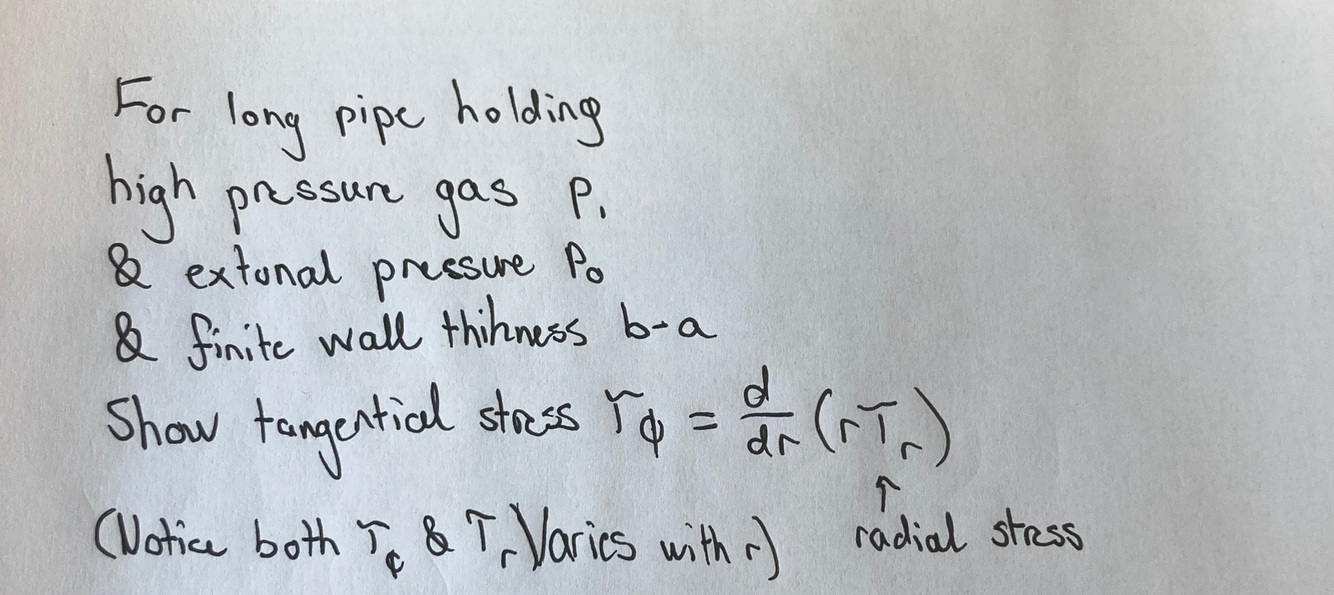 For long pipe holding
high pressure gas P₁
& external pressure P₀
& finite wall thikness b-a
Show tangential stress T_ϕ = d/dr (rT_r)
↑
(Notice both T_ϕ & T_r Varies with r) radial stress